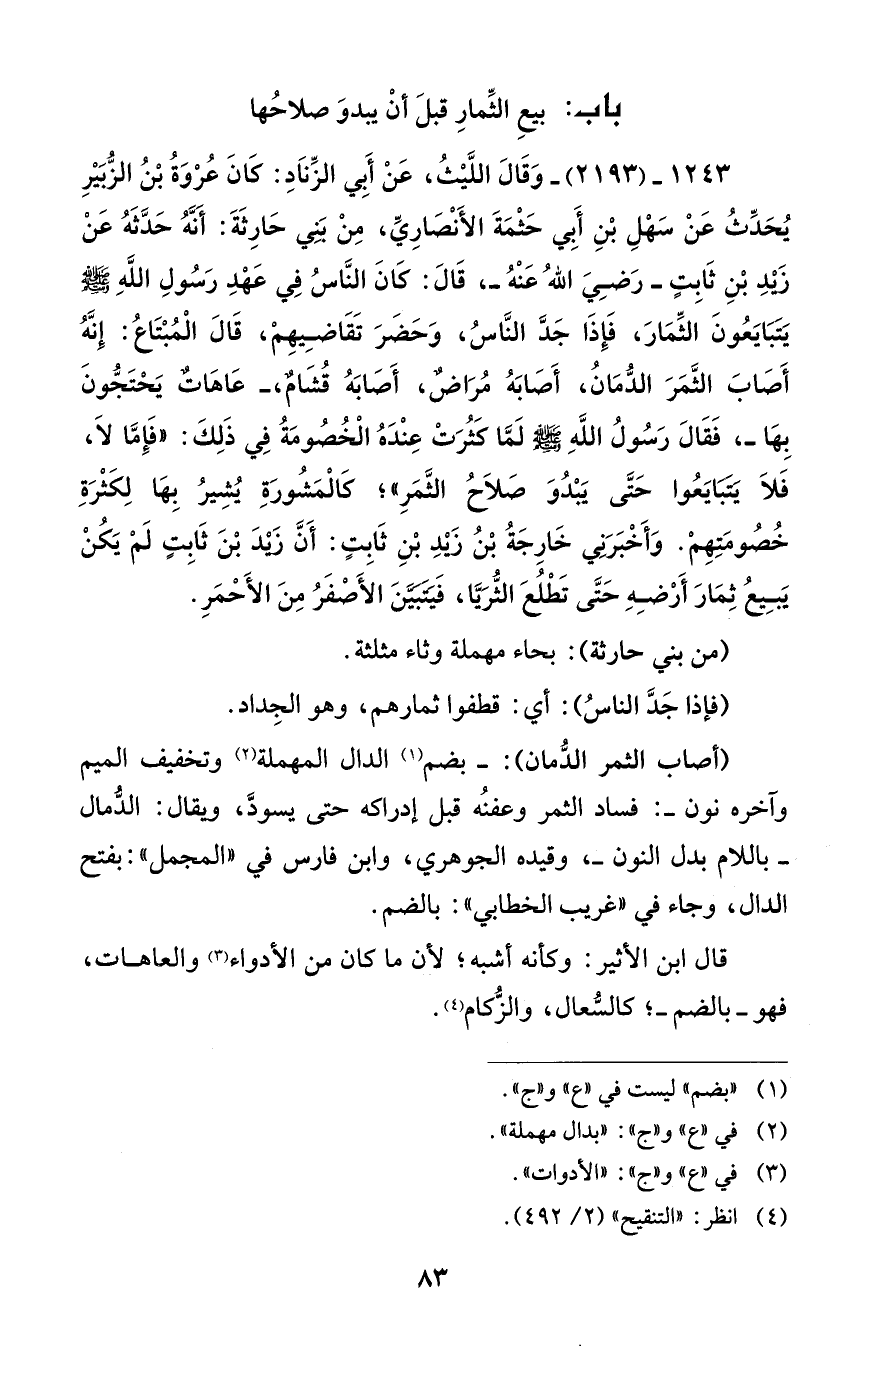 باب: بيعِ الثِّمارِ قبلَ أنْ يبدوَ صلاحُها
١٢٤٣ ـ (٢١٩٣) ـ وَقَالَ اللَّيْثُ، عَنْ أَبِي الزِّنَادِ: كَانَ عُرْوَةُ بْنُ الزُّبَيْرِ
يُحَدِّثُ عَنْ سَهْلِ بْنِ أَبِي حَثْمَةَ الأَنْصَارِيِّ، مِنْ بَنِي حَارِثَةَ: أَنَّهُ حَدَّثَهُ عَنْ
زَيْدِ بْنِ ثَابِتٍ ـ رَضِيَ اللهُ عَنْهُ ـ، قَالَ: كَانَ النَّاسُ فِي عَهْدِ رَسُولِ اللَّهِ ﷺ
يَتَبَايَعُونَ الثِّمَارَ، فَإِذَا جَدَّ النَّاسُ، وَحَضَرَ تَقَاضِيهِمْ، قَالَ الْمُبْتَاعُ: إِنَّهُ
أَصَابَ الثَّمَرَ الدُّمَانُ، أَصَابَهُ مُرَاضٌ، أَصَابَهُ قُشَامٌ، ـ عَاهَاتٌ يَحْتَجُّونَ
بِهَا ـ، فَقَالَ رَسُولُ اللَّهِ ﷺ لَمَّا كَثُرَتْ عِنْدَهُ الْخُصُومَةُ فِي ذَلِكَ: «فَإِمَّا لاَ،
فَلاَ يَتَبَايَعُوا حَتَّى يَبْدُوَ صَلاَحُ الثَّمَرِ»؛ كَالْمَشُورَةِ يُشِيرُ بِهَا لِكَثْرَةِ
خُصُومَتِهِمْ. وَأَخْبَرَنِي خَارِجَةُ بْنُ زَيْدِ بْنِ ثَابِتٍ: أَنَّ زَيْدَ بْنَ ثَابِتٍ لَمْ يَكُنْ
يَبِيعُ ثِمَارَ أَرْضِهِ حَتَّى تَطْلُعَ الثُّرَيَّا، فَيَتَبَيَّنَ الأَصْفَرُ مِنَ الأَحْمَرِ.
(من بني حارثة): بحاء مهملة وثاء مثلثة.
(فإذا جَدَّ الناسُ): أي: قطفوا ثمارهم، وهو الجِداد.
(أصاب الثمر الدُّمان): ـ بضم(١) الدال المهملة(٢) وتخفيف الميم
وآخره نون ـ: فساد الثمر وعفنُه قبل إدراكه حتى يسودَّ، ويقال: الدُّمال
ـ باللام بدل النون ـ، وقيده الجوهري، وابن فارس في «المجمل»: بفتح
الدال، وجاء في «غريب الخطابي»: بالضم.
قال ابن الأثير: وكأنه أشبه؛ لأن ما كان من الأدواء(٣) والعاهات،
فهو ـ بالضم ـ؛ كالسُّعال، والزُّكام(٤).
(١) «بضم» ليست في «ع» و«ج».
(٢) في «ع» و«ج»: «بدال مهملة».
(٣) في «ع» و«ج»: «الأدوات».
(٤) انظر: «التنقيح» (٢/ ٤٩٢).
٨٣